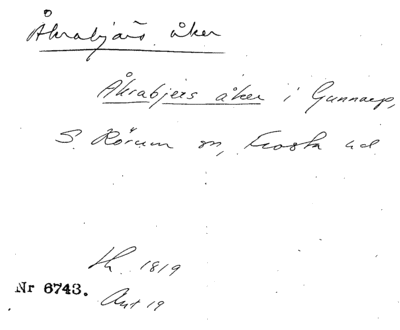 Åkrabjärs åker
Åkrabjers åker i Gunnarp,
S. Rörum sn, Frosta hd
Lh. 1819
Nr 6743.
Avt 19